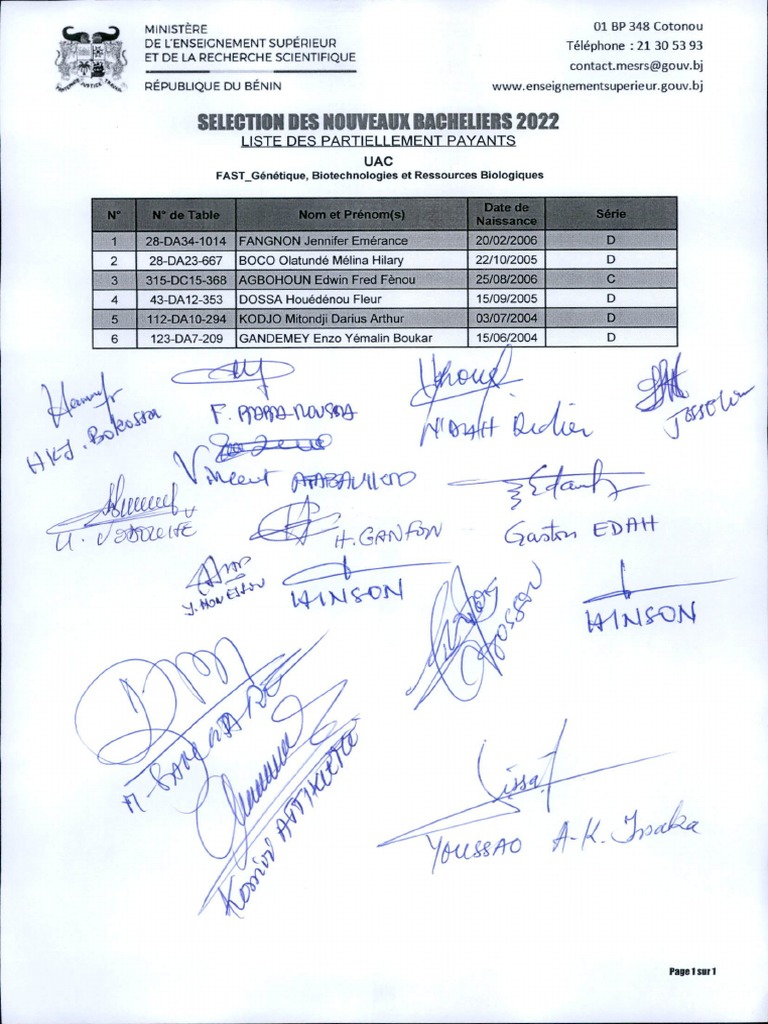 MINISTÈRE
DE L'ENSEIGNEMENT SUPÉRIEUR
ET DE LA RECHERCHE SCIENTIFIQUE
RÉPUBLIQUE DU BÉNIN
01 BP 348 Cotonou
Téléphone : 21 30 53 93
contact.mesrs@gouv.bj
www.enseignementsuperieur.gouv.bj
SELECTION DES NOUVEAUX BACHELIERS 2022
LISTE DES PARTIELLEMENT PAYANTS
UAC
FAST_Génétique, Biotechnologies et Ressources Biologiques
N° N° de Table Nom et Prénom(s) Date de Naissance Série
1 28-DA34-1014 FANGNON Jennifer Emérance 20/02/2006 D
2 28-DA23-667 BOCO Olatundé Mélina Hilary 22/10/2005 D
3 315-DC15-368 AGBOHOUN Edwin Fred Fènou 25/08/2006 C
4 43-DA12-353 DOSSA Houédénou Fleur 15/09/2005 D
5 112-DA10-294 KODJO Mitondji Darius Arthur 03/07/2004 D
6 123-DA7-209 GANDEMEY Enzo Yémalin Boukar 15/06/2004 D
Didier
Vincent
H. GANFON
Gaston EDAH
HINSON
HINSON
YOUSSAO A-K. Issaka
Page 1 sur 1